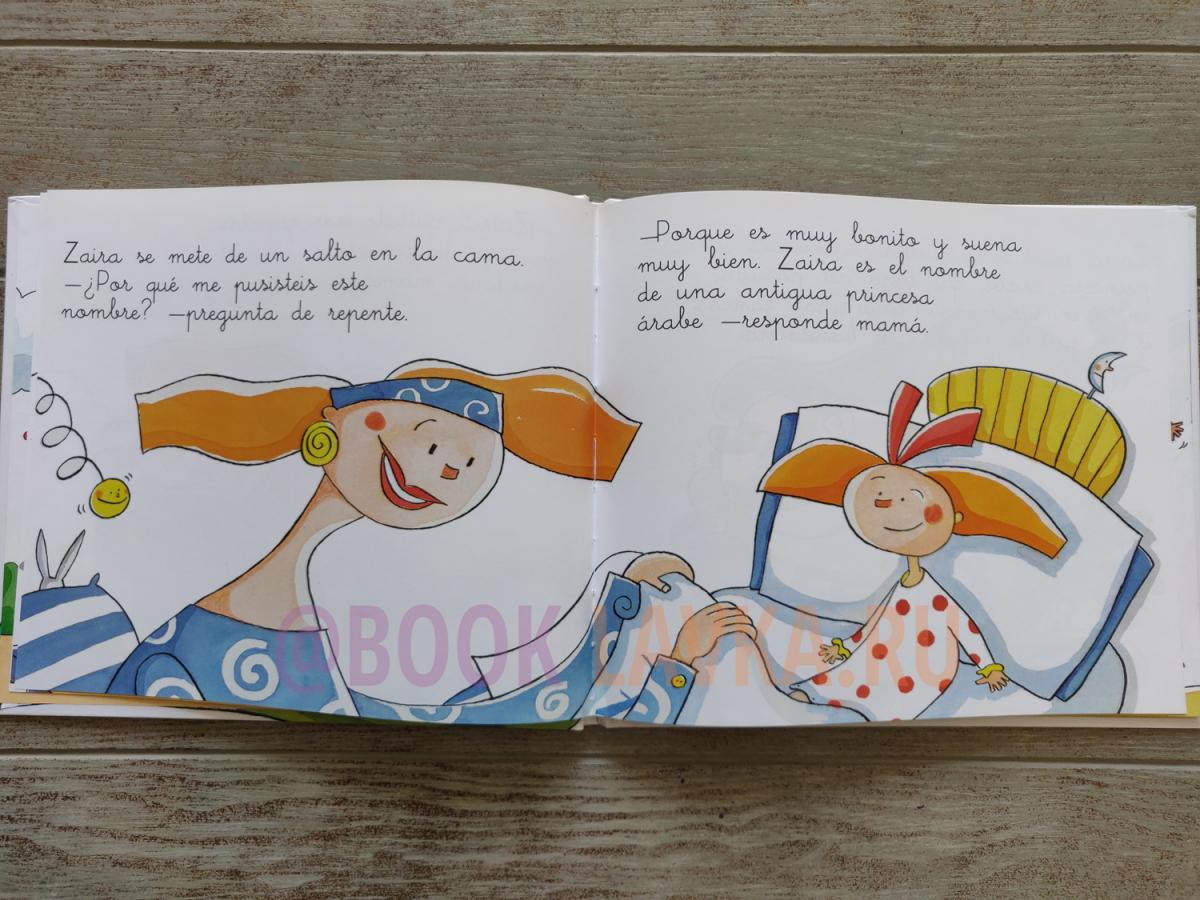 Zaira se mete de un salto en la cama.
—¿Por qué me pusisteis este
nombre? —pregunta de repente.
—Porque es muy bonito y suena
muy bien. Zaira es el nombre
de una antigua princesa
árabe —responde mamá.
@BOOK LAVKA.RU